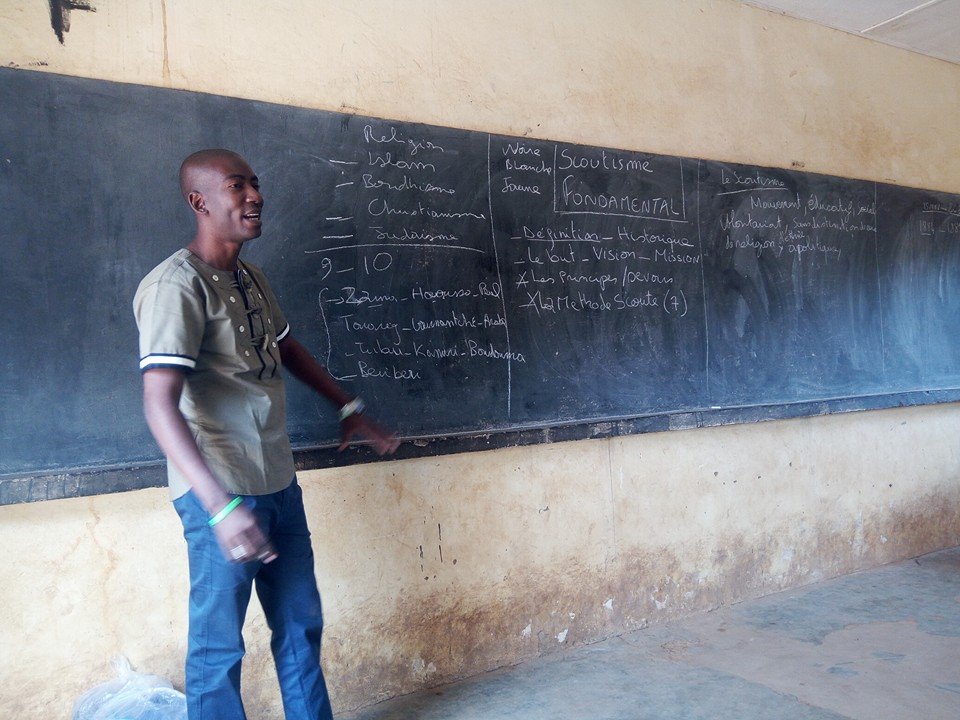 Religion
- Islam
- Boudhisme
- Christianisme
- Judaïsme
9 - 10
Zarma - Haoussa - Peul
Touareg - Gourmantché - Arabe
- Toubou - Kanuri - Boudouma
- Beriberi
Noire
Blanche
Jaune
Scoutisme
FONDAMENTAL
- Définition - Historique
- Le but - Vision - Mission
X Les Principes / devoirs
X La Methode Scoute (7)
Le Scoutisme
Mouvement éducatif, social
Volontariat, Sans distinction de
de religion, apolitique